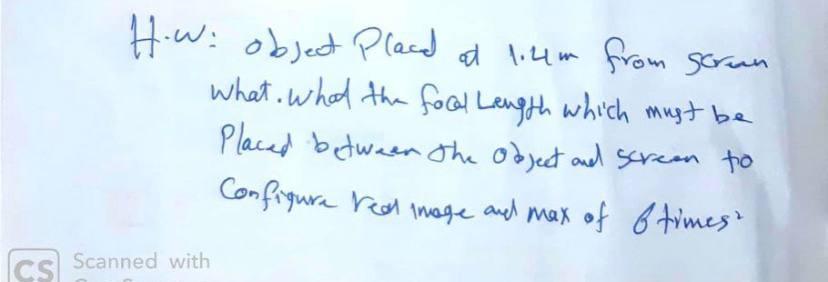 H.W: object Placed at 1.4m from screen
what. what the focal Length which must be
Placed between the object and screen to
Configure real image and max of 6 times?
CS Scanned with